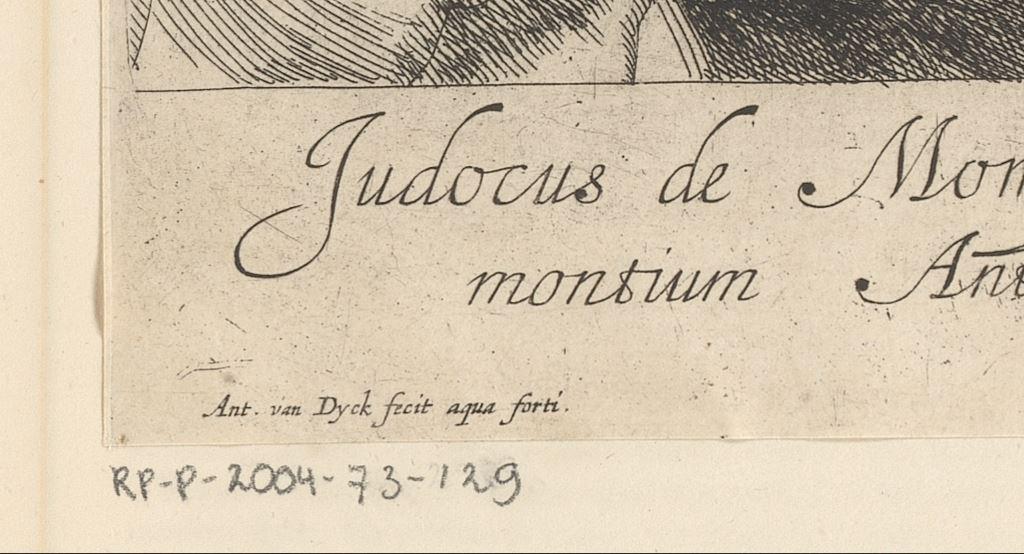 Judocus de Mom
montium Ant
Ant. van Dyck fecit aqua forti.
RP-P-2004-73-129